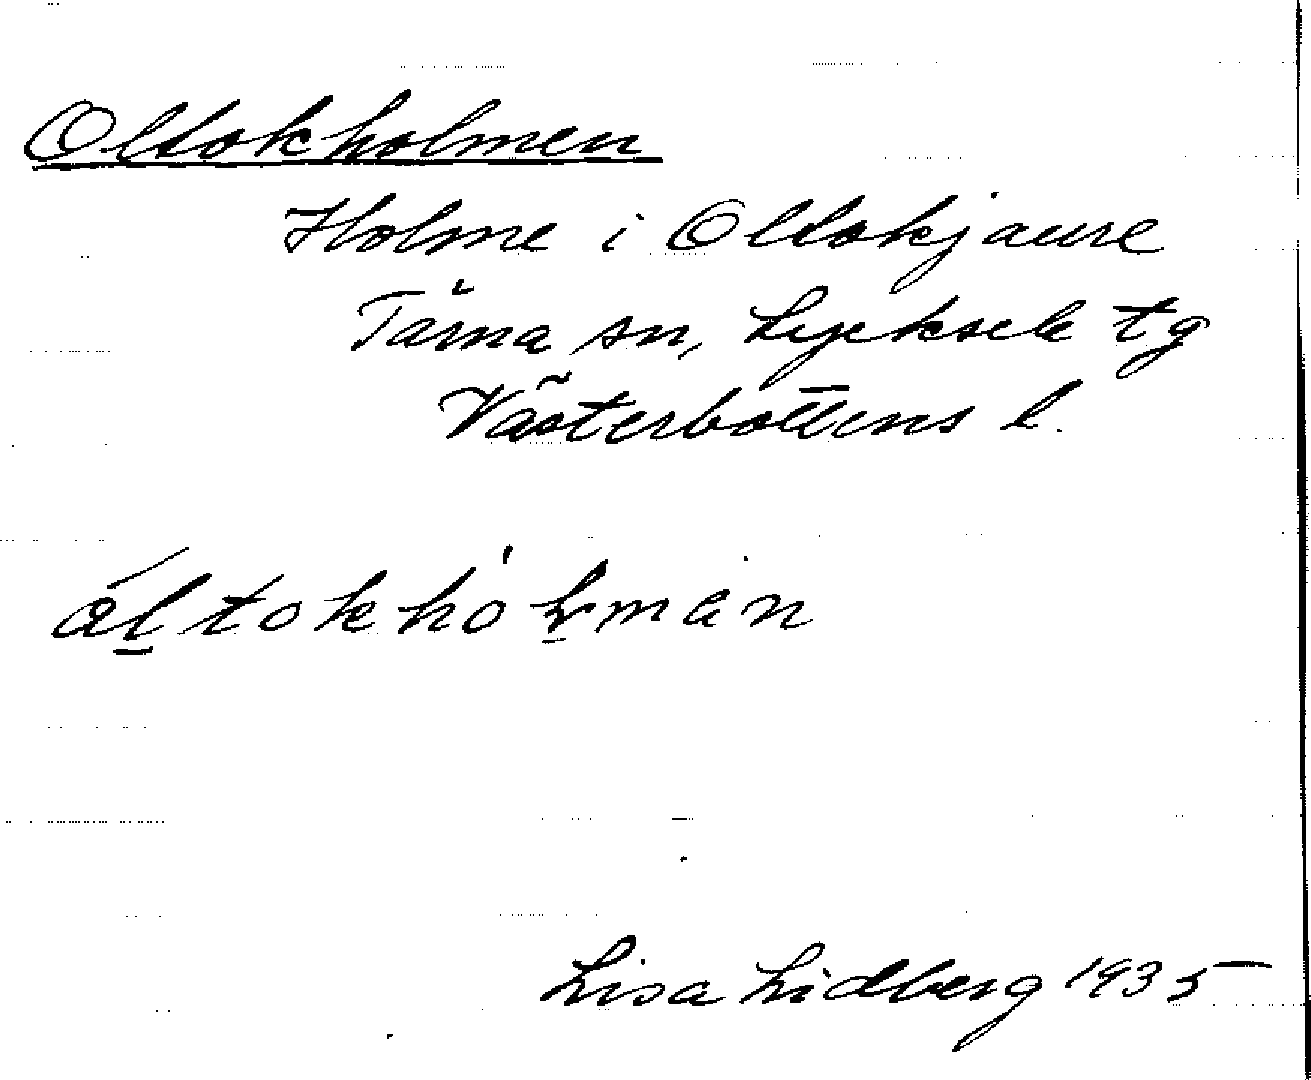 Oltokholmen
Holme i Oltokjaure
Tärna sn, Lycksele tg
Västerbottens l.
Lisa Lidberg 1935